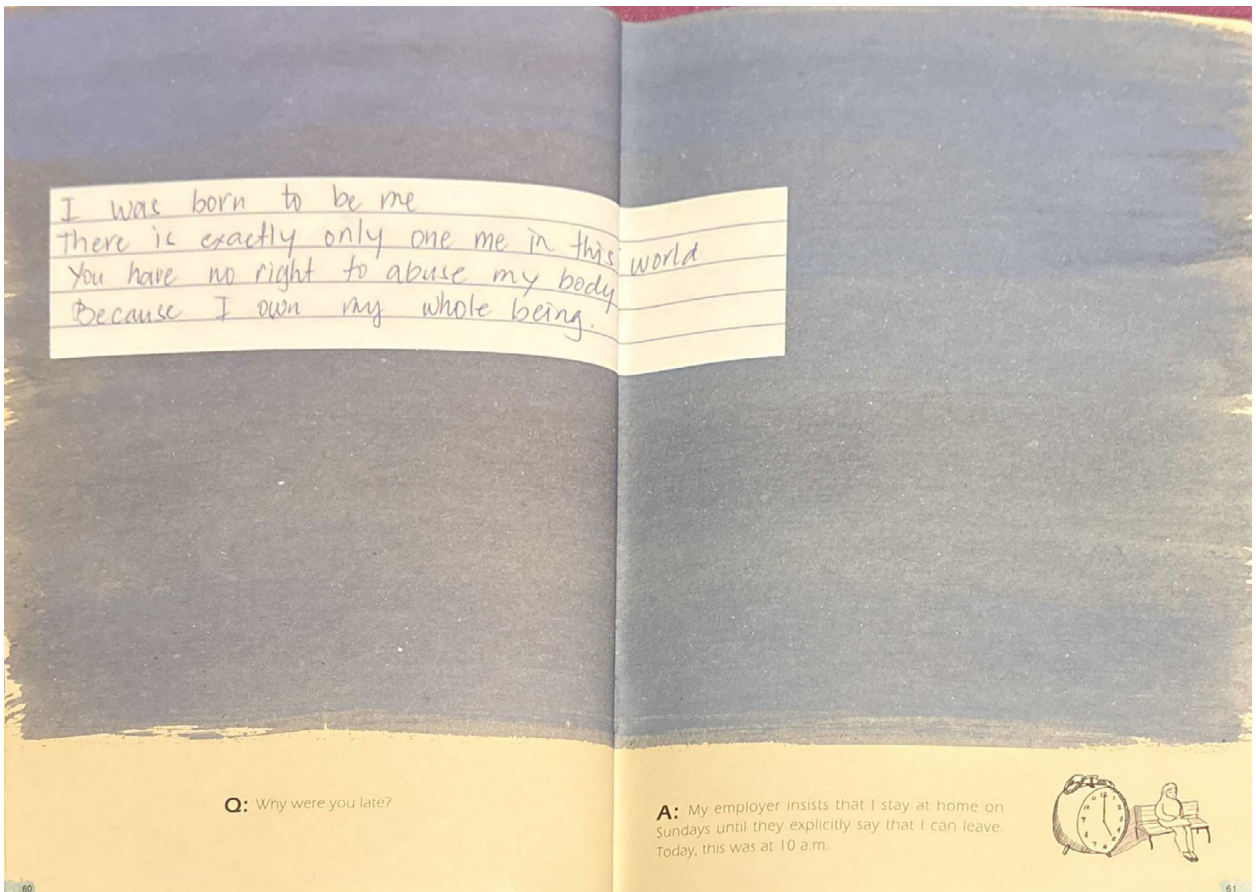 I was born to be me
There is exactly only one me in this world
You have no right to abuse my body
Because I own my whole being.
Q: Why were you late?
A: My employer insists that I stay at home on
Sundays until they explicitly say that I can leave.
Today, this was at 10 a.m.
60
61